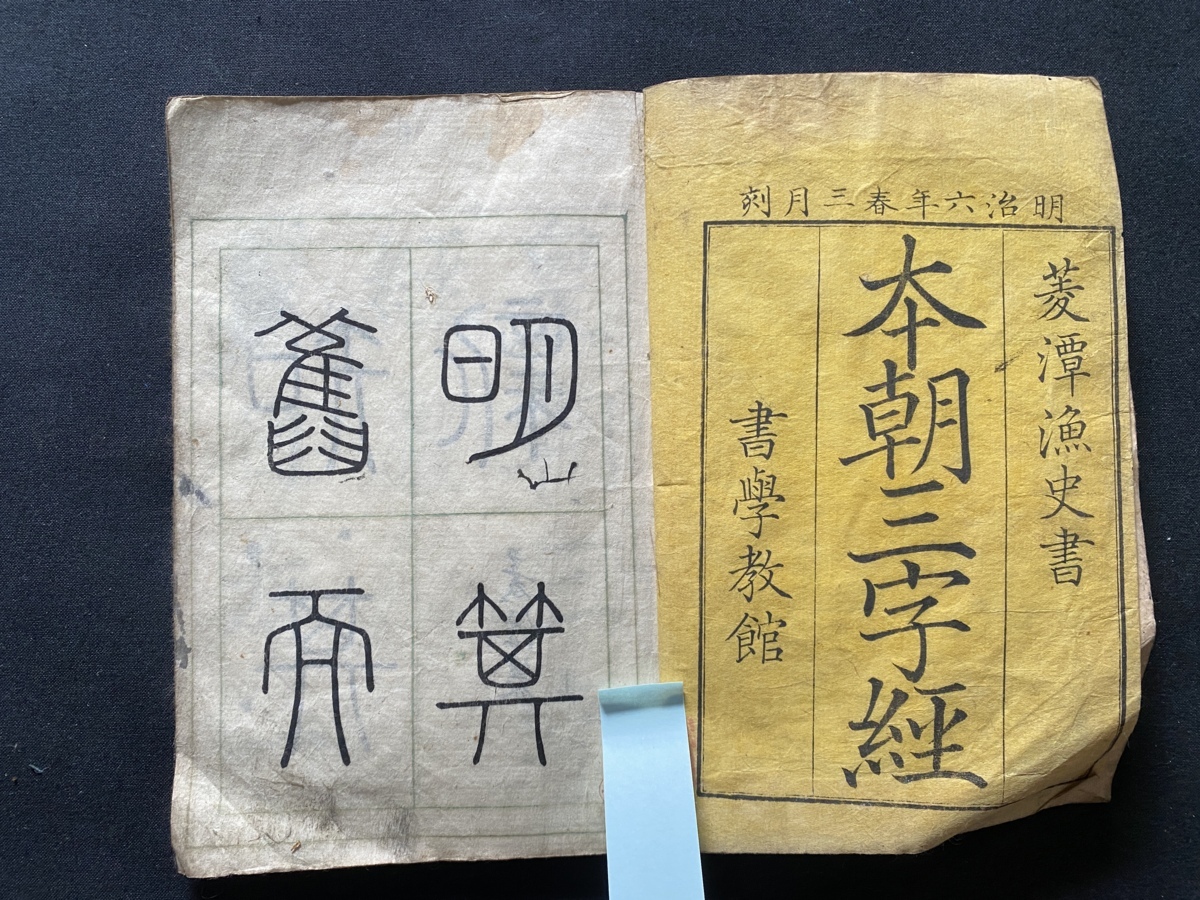 明治六年春三月刻
菱潭漁史書
本朝三字經
書學教館
明箕
舊而